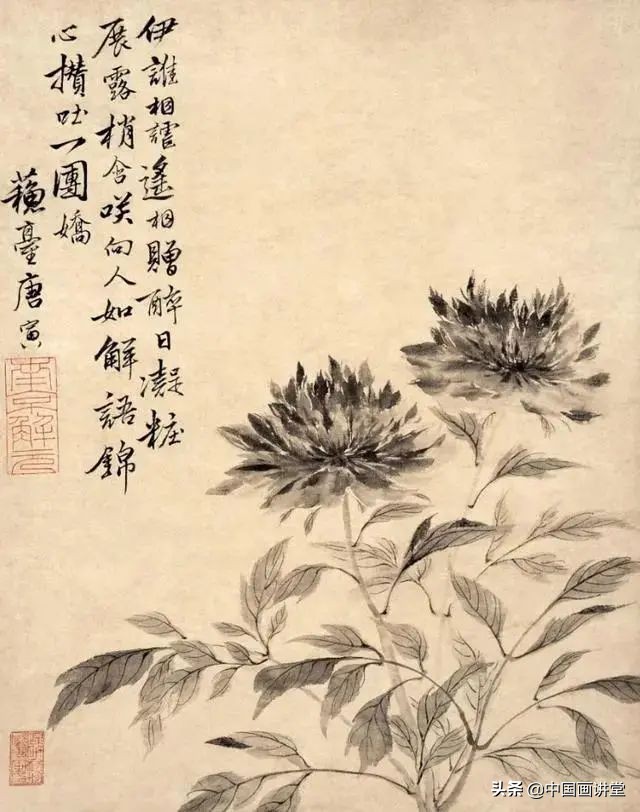 伊誰相謔遙相贈醉日凝粧
展露梢含咲向人如解語錦
心攢吐一團嬌
蘓臺唐寅
南京解元
头条 @中国画讲堂